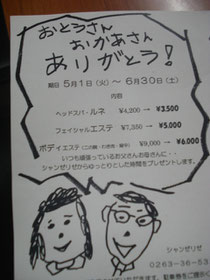 おとうさん
おかあさん
ありがとう!
期日 5月1日(火)～6月30日(土)
内容
ヘッドスパ・ルネ ¥4,200 → ¥3,500
フェイシャルエステ ¥7,350 → ¥5,000
ボディエステ(二の腕・わき肉・背中) ¥9,000 → ¥6,000
いつも頑張っているお父さんお母さんに・・
シャンゼリゼからゆっくりとした時間をプレゼントします。
シャンゼリゼ
0263-36-53